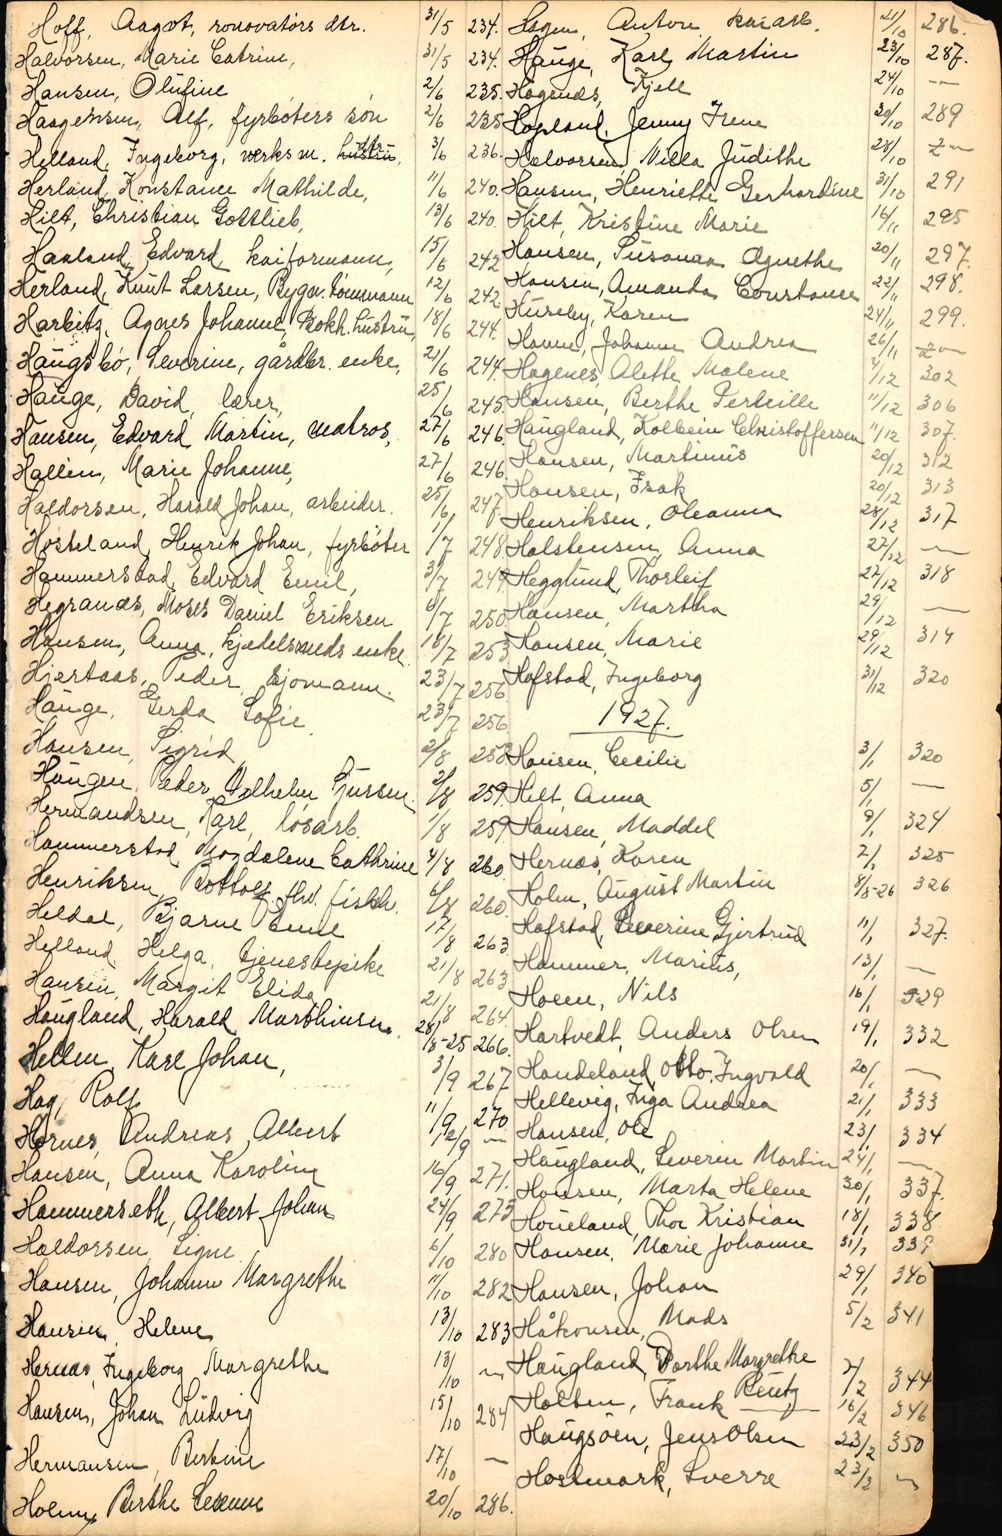 Hoff, Aagot, renovatørs dtr. 31/5 234.
Halvorsen, Marie Catrine, 31/5 234.
Hansen, Olufine 2/6 235.
Haagensen, Alf, fyrbøters søn 2/6 235
Helland, Ingeborg, verksm. hustru, 3/6 236.
Herland, Konstance Mathilde, 11/6 240.
Hilt, Christian Gottlieb, 13/6 240.
Haaland, Edvard, kaiformann, 15/6 242
Herland, Knut Larsen, Bygn. tømmann 12/6 242.
Harbitz, Agnes Johanne, Bokh. hustru, 18/6 244.
Haugsbø, Severine, gårdbr. enke, 21/6 244.
Hauge, David, lærer, 25/6 245.
Hansen, Edvard Martin, matros, 27/6 246.
Hallin, Marie Johanne, 27/6 246.
Haldorsen, Harald Johan, arbeider. 25/6 247.
Høsteland, Henrik Johan, fyrbøter 1/7 248
Hammerstad, Edvard Emil, 3/7 249.
Hegranæs, Moses Daniel Eriksen 6/7 250
Hansen, Anna, kjedelsmeds enke. 18/7 253
Hjertaas, Peder, sjømann. 23/7 256.
Hauge, Gerda Sofie 23/7 256
Hansen, Sigrid 2/8 258
Haugen, Peder Vilhelm Gjussen. 2/8 259.
Hermandsen, Karl, løsarb. 1/8 259.
Hammerstad, Magdalene Cathrine 4/8 260.
Henriksen, Bottolf, fhv. fiskh. 6/8 260.
Heldal, Bjarne Emil 17/8 263
Helland, Helga, tjenestepike 21/8 263
Hansen, Margit Elida 21/8 264.
Haugland, Harald Marthinsen. 28/8-25 266.
Hellen, Karl Johan, 3/9 267
Hag, Rolf 11/9 270
Hornes, Andreas Albert 12/9 —
Hansen, Anna Karoline 16/9 271.
Hammerseth, Albert Johan 24/9 275
Haldorsen, Signe 6/10 280
Hansen, Johanne Margrethe 11/10 282
Hansen, Helene 13/10 283
Hernæs, Ingeborg Margrethe 13/10 —
Hansen, Johan Ludvig 15/10 284
Hermansen, Bertine 17/10 —
Holm, Berthe 20/10 286.
Hagen, Anton kaiarb. 21/10 286.
Hauge, Karl Martin 23/10 287.
Høgends, Kjell 24/10 —
Hopland, Jenny Irene 30/10 289
Halvorsen, Nilla Judithe 28/10 —
Hansen, Henriette Gerhardine 31/10 291
Hilt, Kristine Marie 14/11 295
Hansen, Susanna Agnethe 20/11 297.
Hansen, Amanda Constance 22/11 298.
Huseby, Karen 24/11 299.
Hanne, Johanne Andrea 26/11 —
Hagenes, Alethe Malene 4/12 302
Hansen, Berthe Pernille 11/12 306
Haugland, Kolbein Christoffersen 11/12 307.
Hansen, Martinus 20/12 312
Hansen, Isak 20/12 313
Henriksen, Oleanna 28/12 317
Halstensen, Anna 27/12 —
Hegglund, Thorleif 27/12 318
Hansen, Martha 29/12 —
Hansen, Marie 29/12 319
Hofstad, Ingeborg 31/12 320
1927.
Hansen, Cecilie 3/1 320
Helt, Anna 5/1 —
Hansen, Maddel 9/1 324
Hernæs, Karen 2/1 325
Holm, August Martin 8/5-26 326
Hofstad, Severine Gjertrud 11/1 327.
Hammer, Marius, 13/1 —
Holm, Nils 16/1 329
Hartvedt, Anders Olsen 19/1 332
Handeland, Otto, Ingvald 20/1 —
Helleveg, Inga Andrea 21/1 333
Hansen, Ole 23/1 334
Haugland, Severin Martin 24/1 —
Hansen, Marta Helene 30/1 337.
Houeland, Thor Kristian 18/1 338
Hansen, Marie Johanne 31/1 339
Hansen, Johan 29/1 340
Håkonsen, Mads 5/2 341
Haugland, Dorthe Margrethe 7/2 344
Holsen, Frank Reutz 16/2 346
Haugsøen, Jens Olsen 23/2 350
Hostmark, Sverre 23/2 —